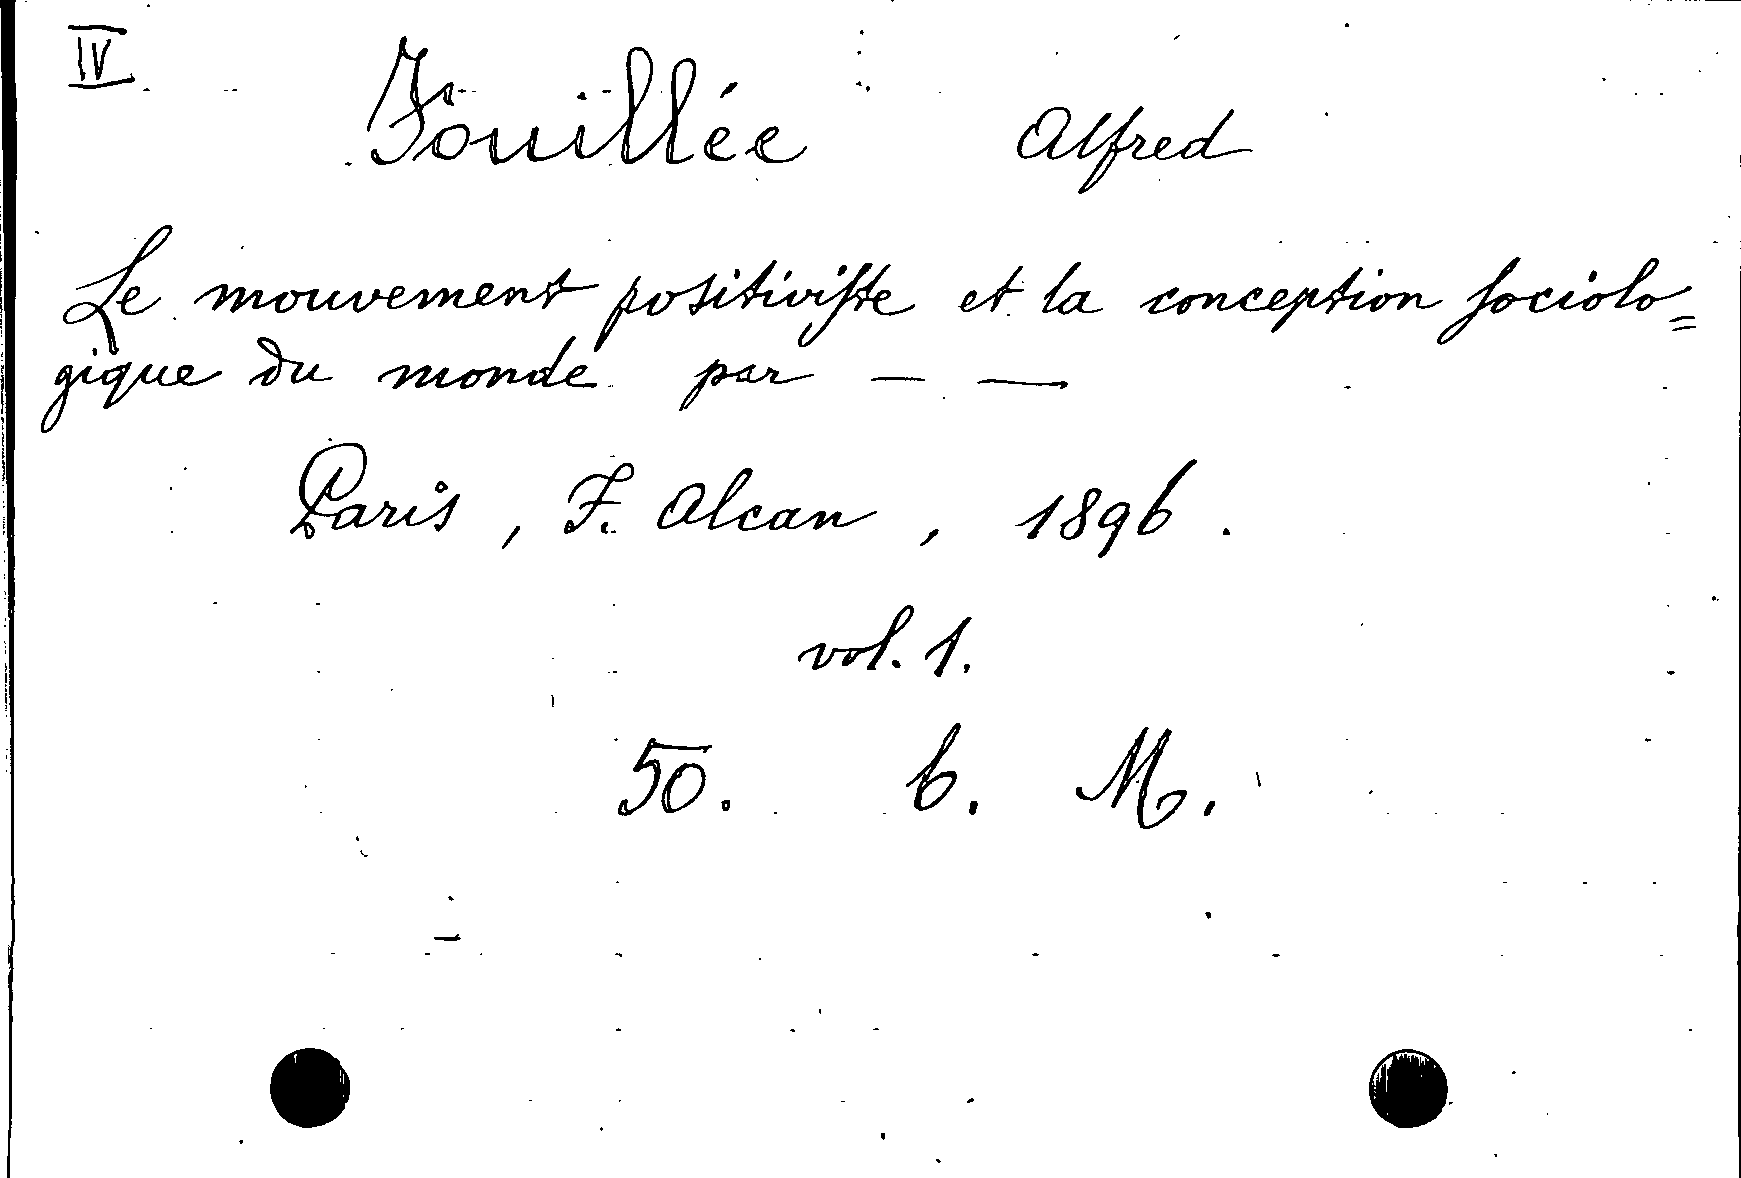 IV
Fouillée Alfred
Le mouvement positiviste et la conception sociolo=
gique du monde par — —
Paris, F. Alcan, 1896.
vol. 1.
50. b. M.